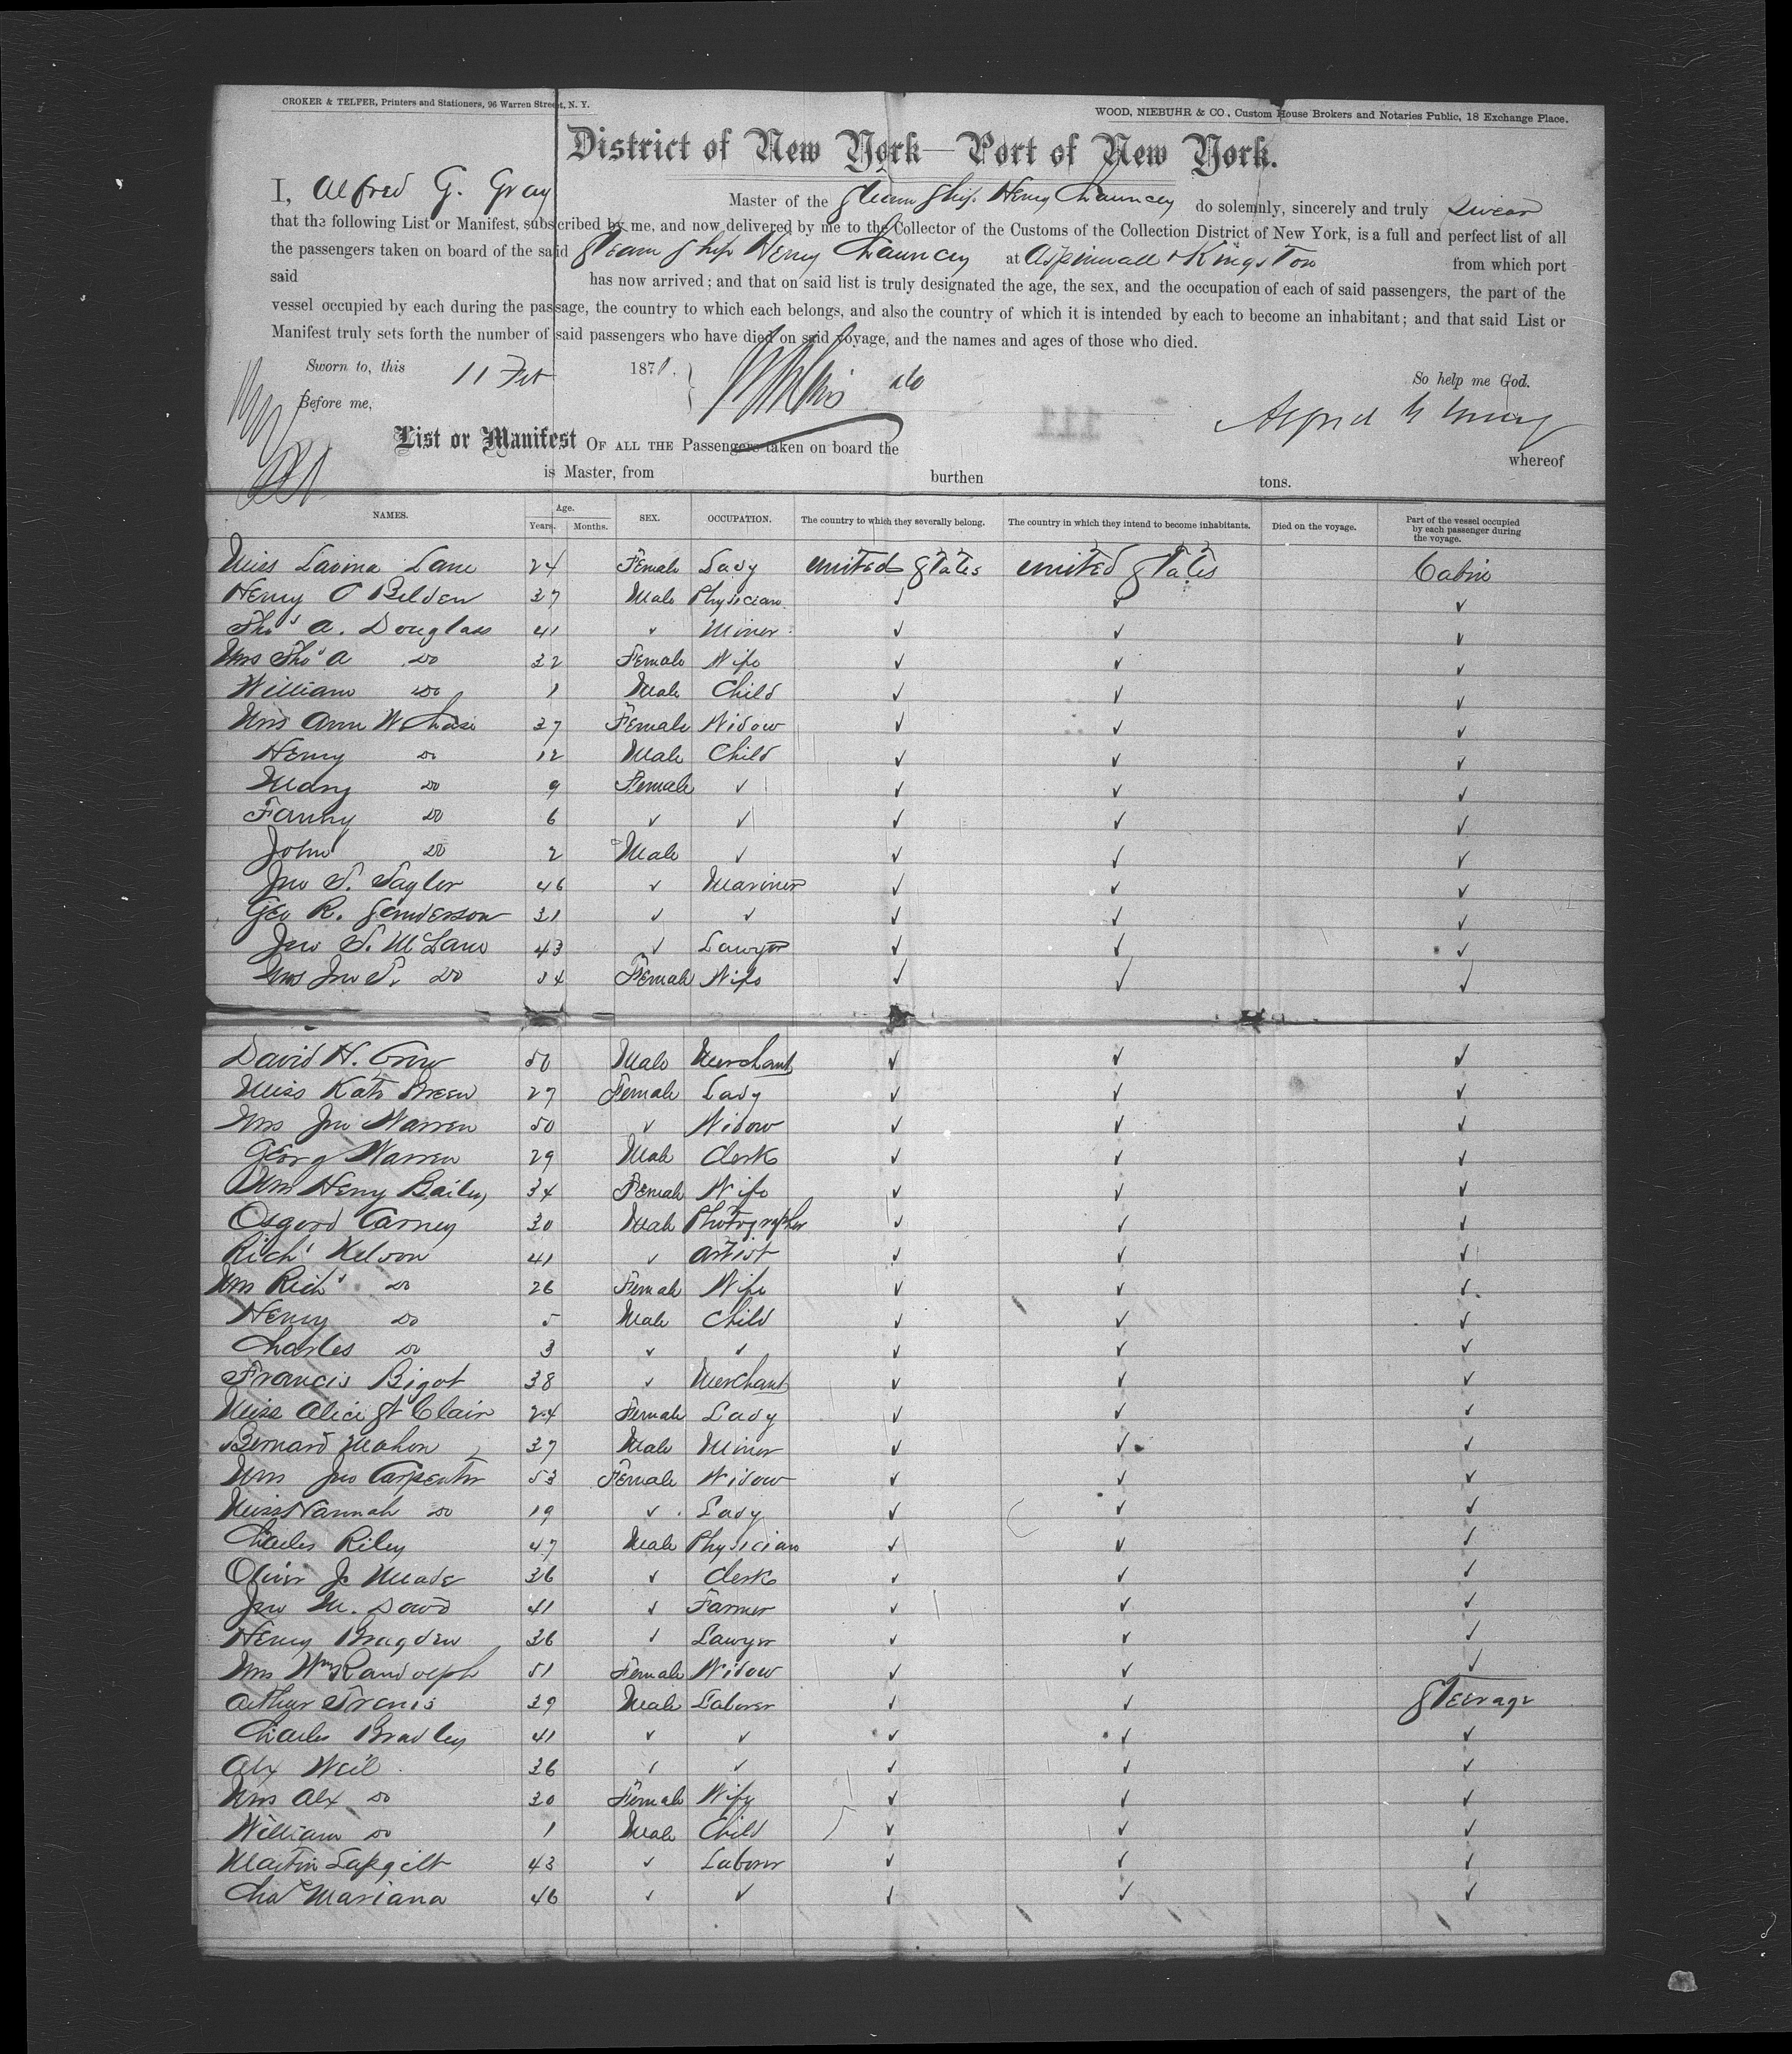 CROKER & TELFER, Printers and Stationers, 96 Warren Street, N. Y.
WOOD, NIEBUHR & CO., Custom House Brokers and Notaries Public, 18 Exchange Place.
District of New York—Port of New York.
I, Alfred G. Gray Master of the Steam Ship Henry Chauncey do solemnly, sincerely and truly Swear
that the following List or Manifest, subscribed by me, and now delivered by me to the Collector of the Customs of the Collection District of New York, is a full and perfect list of all
the passengers taken on board of the said Steam Ship Henry Chauncey at Aspinwall & Kingston from which port
said has now arrived; and that on said list is truly designated the age, the sex, and the occupation of each of said passengers, the part of the
vessel occupied by each during the passage, the country to which each belongs, and also the country of which it is intended by each to become an inhabitant; and that said List or
Manifest truly sets forth the number of said passengers who have died on said voyage, and the names and ages of those who died.
Sworn to, this 11 Feb 1871. So help me God.
Before me, Alfred G Gray
List or Manifest OF ALL THE Passengers taken on board the whereof
is Master, from burthen tons.
NAMES. Age. Years. Months. SEX. OCCUPATION. The country to which they severally belong. The country in which they intend to become inhabitants. Died on the voyage. Part of the vessel occupied by each passenger during the voyage.
Miss Lavina Lane 24 Female Lady United States United States Cabin
Henry O Belden 37 Male Physician ✓ ✓ ✓
Thos A. Douglass 41 ✓ Miner ✓ ✓ ✓
Mrs Thos A Do 32 Female Wife ✓ ✓ ✓
William Do 1 Male Child ✓ ✓ ✓
Mrs Ann W Chase 37 Female Widow ✓ ✓ ✓
Henry Do 12 Male Child ✓ ✓ ✓
Mary Do 9 Female ✓ ✓ ✓ ✓
Fanny Do 6 ✓ ✓ ✓ ✓ ✓
John Do 2 Male ✓ ✓ ✓ ✓
Jno S. Taylor 46 ✓ Mariner ✓ ✓ ✓
Geo R. Senderson 31 ✓ ✓ ✓ ✓ ✓
Jno S. McLane 43 ✓ Lawyer ✓ ✓ ✓
Mrs Jno S. Do 34 Female Wife ✓ ✓ ✓
David H. Crow 50 Male Merchant ✓ ✓ ✓
Miss Kate Breen 27 Female Lady ✓ ✓ ✓
Mrs Jno Warren 50 ✓ Widow ✓ ✓ ✓
Georg Warren 29 Male Clerk ✓ ✓ ✓
Mrs Henry Bailey 34 Female Wife ✓ ✓ ✓
Osgood Carney 30 Male Photographer ✓ ✓ ✓
Richd Nelson 41 ✓ Artist ✓ ✓ ✓
Mrs Richd Do 26 Female Wife ✓ ✓ ✓
Henry Do 5 Male Child ✓ ✓ ✓
Charles Do 3 ✓ ✓ ✓ ✓ ✓
Francis Bigot 38 ✓ Merchant ✓ ✓ ✓
Miss Alice St Clair 24 Female Lady ✓ ✓ ✓
Bernard Mahon 37 Male Miner ✓ ✓ ✓
Mrs Jno Carpenter 53 Female Widow ✓ ✓ ✓
Miss Hannah Do 19 ✓ Lady ✓ ✓ ✓
Charles Riley 47 Male Physician ✓ ✓ ✓
Oliver J. Meade 36 ✓ Clerk ✓ ✓ ✓
Jno M. Dowd 41 ✓ Farmer ✓ ✓ ✓
Henry Bragden 36 ✓ Lawyer ✓ ✓ ✓
Mrs Wm Randolph 51 Female Widow ✓ ✓ ✓
Arthur 39 Male Laborer ✓ ✓ Steerage
Charles Bradley 41 ✓ ✓ ✓ ✓ ✓
Alx Weil 36 ✓ ✓ ✓ ✓ ✓
Mrs Alx Do 30 Female Wife ✓ ✓ ✓
William Do 1 Male Child ✓ ✓ ✓
Martin 43 ✓ Laborer ✓ ✓ ✓
Chas Mariana 46 ✓ ✓ ✓ ✓ ✓